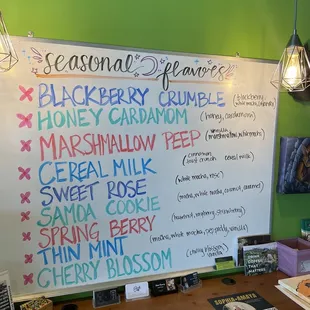 seasonal flavors
BLACKBERRY CRUMBLE (blackberry, white mocha,
HONEY CARDAMOM (honey, cardamom)
MARSHMALLOW PEEP (vanilla, marshmallow, white mocha)
CEREAL MILK (cinnamon toast crunch cereal milk)
SWEET ROSE (white mocha, rose)
SAMOA COOKIE (mocha, white mocha, coconut, caramel)
SPRING BERRY (hazelnut, raspberry, strawberry)
THIN MINT (mocha, white mocha, peppermint,
CHERRY BLOSSOM (cherry blossom, vanilla)